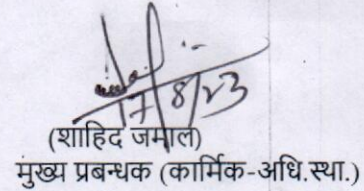 7/8/23
(शाहिद जमाल)
मुख्य प्रबन्धक (कार्मिक-अधि.स्था.)